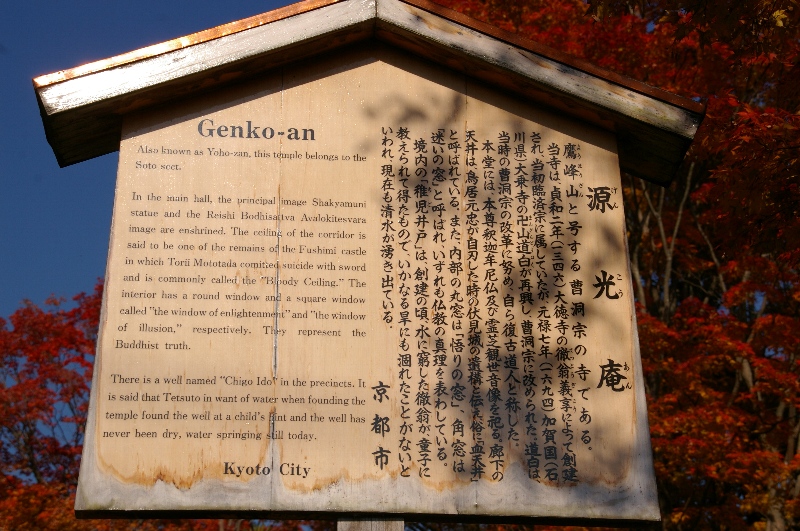 Genko-an
Also known as Yoho-zan, this temple belongs to the
Soto sect.
In the main hall, the principal image Shakyamuni
statue and the Reishi Bodhisatva Avalokitesvara
image are enshrined. The ceiling of the corridor is
said to be one of the remains of the Fushimi castle
in which Torii Mototada comitted suicide with sword
and is commonly called the "Bloody Ceiling." The
interior has a round window and a square window
called "the window of enlightenment" and "the window
of illusion," respectively. They represent the
Buddhist truth.
There is a well named "Chigo Ido" in the precincts. It
is said that Tetsuto in want of water when founding the
temple found the well at a child's hint and the well has
never been dry, water springing still today.
Kyoto City
源光庵
げんこうあん
鷹峰山と号する曹洞宗の寺である。
当寺は、貞和二年(一三四六)大徳寺の徹翁義亨によって創建
され、当初臨済宗に属していたが、元禄七年(一六九四)加賀国(石
川県)大乗寺の卍山道白が再興し、曹洞宗に改められた。道白は、
当時の曹洞宗の改革に努め、自ら復古道人と称した。
本堂には、本尊釈迦牟尼仏及び霊芝観世音像を祀る。廊下の
天井は、鳥居元忠が自刃した時の伏見城の遺構と伝え、俗に「血天井」
と呼ばれている。また、内部の丸窓は「悟りの窓」、角窓は
「迷いの窓」と呼ばれ、いずれも仏教の真理を表わしている。
境内の「稚児井戸」は、創建の頃、水に窮した徹翁が童子に
教えられて得たもので、いかなる旱にも涸れたことがないと
いわれ、現在も清水が湧き出ている。
京都市